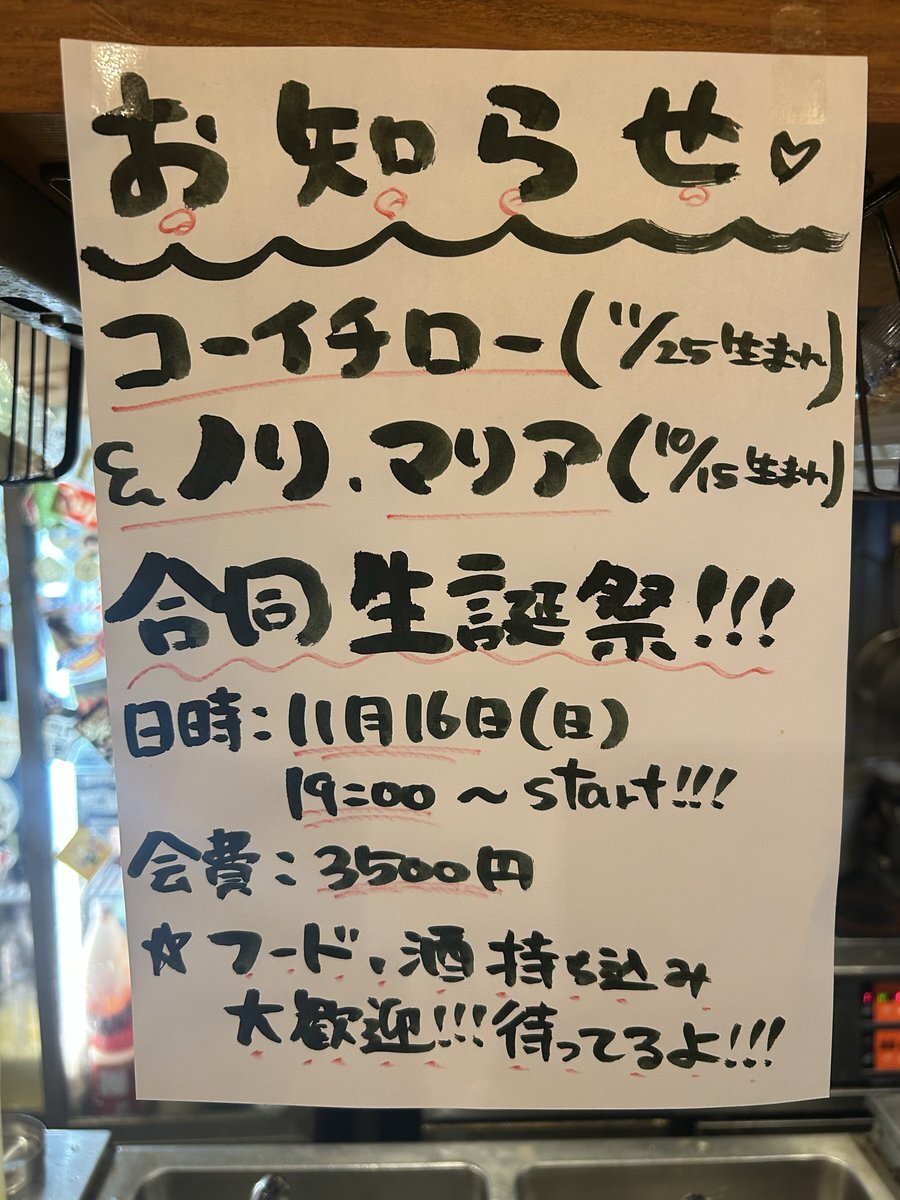 お知らせ♡
コーイチロー(11/25生まれ)
&ノリ.マリア(10/15生まれ)
合同生誕祭!!!
日時:11月16日(日)
19:00〜start!!!
会費:3500円
☆フード、酒持ち込み
大歓迎!!!待ってるよ!!!